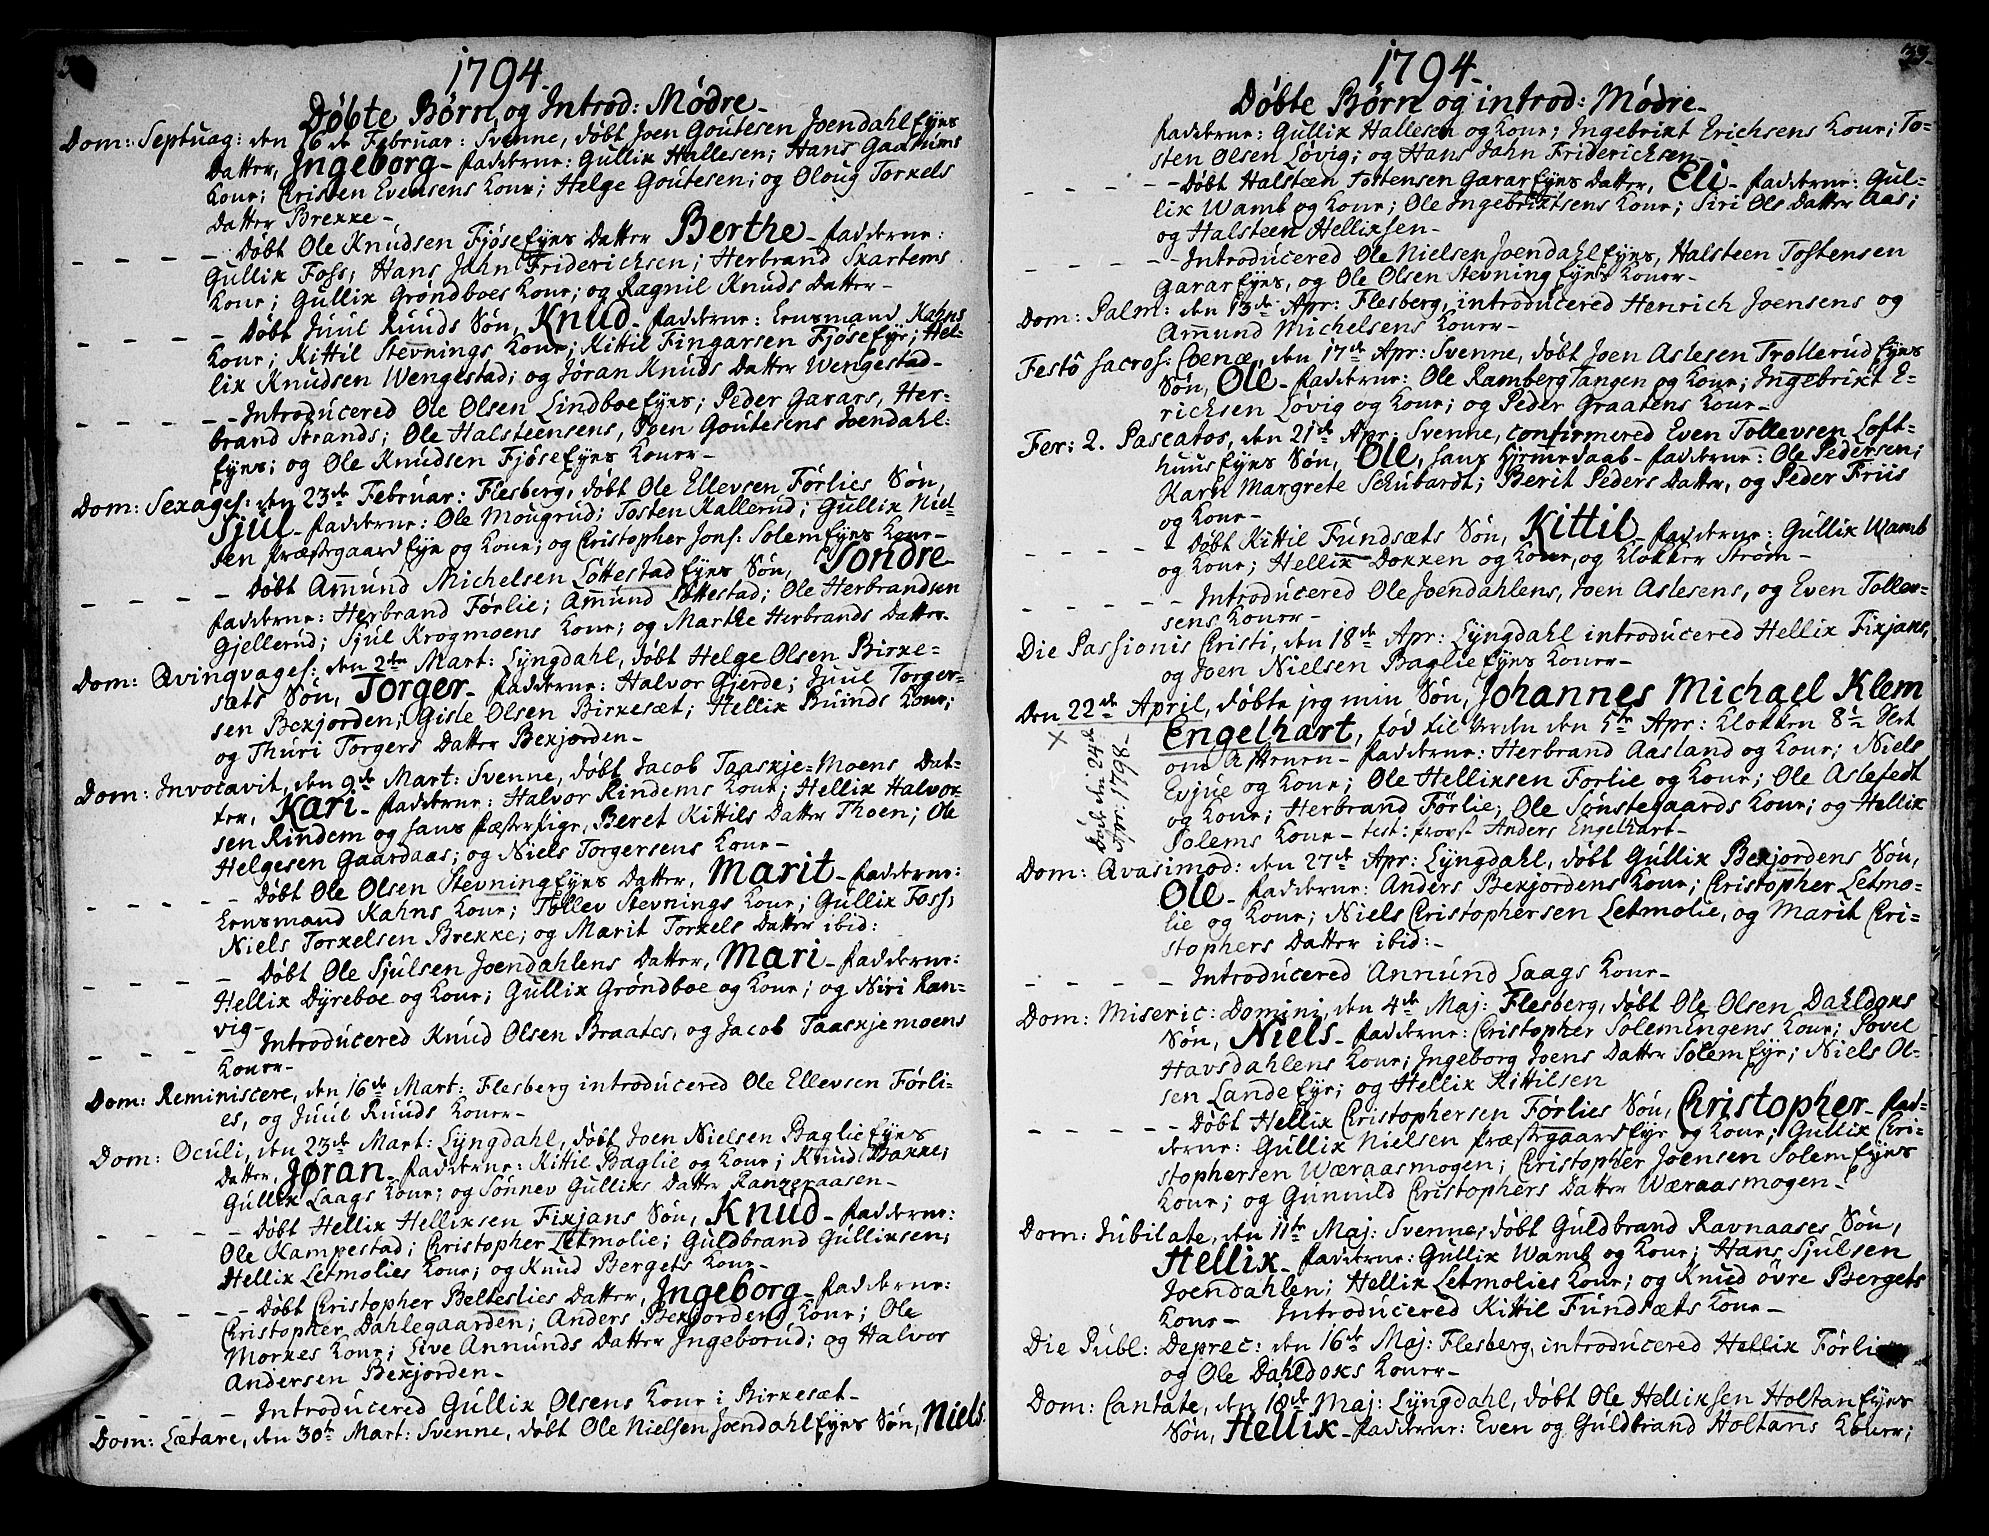 1794.
Døbte Børn og Introd: Mødre.
Dom: Septuag: den 16de Februar: Svenne, døbt Joen Goutesen Joendahl Eyes
Datter, Ingeborg. Fadderne: Gullix Hallesen; Hans Gaarims
Kone; Cristen Evensens Kone; Helge Goutesen; og Oloug Torkels
Datter Brekke.
- - - - Døbt Ole Knudsen Fjøse Eyes Datter Berthe. Fadderne:
Gullix Foss; Hans Jahn Friderichsen; Herbrand Skartems
Kone; Gullix Grøndboes Kone; og Ragnil Knuds Datter.
- - - - Døbt Juul Ruuds Søn, Knud. Fadderne: Lensmand Kahns
Kone; Kittil Stevnings Kone; Kittil Fingarsen Fjøse Eye; Hel-
lix Knudsen Wengestad; og Jøran Knuds Datter Wengestad.
- - - - Introducered Ole Olsen Lindboe Eyes; Peder Garars, Her-
brand Strands; Ole Halsteensens, Joen Goutesens Joendahl-
Eyes; og Ole Knudsen Fjøse Eyes Koner.
Dom: Sexages: den 23de Februar: Flesberg, døbt Ole Ellevsen Førlies Søn,
Sjul. Fadderne: Ole Mougrud; Tosten Kallerud; Gullix Niel-
sen Præstegaard Eye og Kone; og Christopher Jons: Solem Eyes Kone.
- - - - Døbt Amund Michelsen Løttestad Eyes Søn, Sondre
Fadderne: Herbrand Førlie; Amund Løttestad; Ole Herbrandsen
Gjellerud; Sjul Krogmoens Kone; og Marthe Herbrands Datter.
Dom: Qvingvages: den 2den Mart: Lyngdahl, døbt Helge Olsen Birke-
sæts Søn, Torger. Fadderne: Halvor Gjerde; Juul Torger-
sen Bexjorden; Gisle Olsen Birkesæt; Hellix Buinds Kone;
og Thuri Torgers Datter Bexjorden.
Dom: Invocavit, den 9de Mart: Svenne, døbt Jacob Taaskje-Moens Dat-
ter, Kari. Fadderne: Halvor Rindems Kone; Hellix Halvor-
sen Rindem og hans Fæstepige, Beret Kittils Datter Thoen; Ole
Helgesen Gaardaas; og Niels Torgersens Kone.
- - - - Døbt Ole Olsen Stevning Eyes Datter, Marit. Fadderne:
Lensmand Kahns Kone; Tollev Stevnings Kone; Gullix Foss;
Niels Torkelsen Brekke; og Marit Torkels Datter ibid:
- - - - Døbt Ole Sjulsen Joendahlens Datter, Mari. Fadderne:
Hellix Dyreboe og Kone; Gullix Grøndboe og Kone; og Niri Ran-
vig.
- - - - Introducered Knud Olsen Braates, og Jacob Taaskjemoens
Koner.
Dom: Reminiscere, den 16de Mart: Flesberg introducered Ole Ellevsen Førli-
es, og Juul Ruuds Koner.
Dom: Oculi, den 23de Mart: Lyngdahl, døbt Joen Nielsen Baglie Eyes
Datter, Jøran. Fadderne: Kittil Baglie og Kone; Knud Bakke;
Gullix Laags Kone; og Sønnev Gullixs Datter Rangeraasen.
- - - - Døbt Hellix Hellixsen Fixjans Søn, Knud. Fadderne:
Ole Kampestad; Christopher Letmolie; Guldbrand Gullixsen;
Hellix Letmolies Kone; og Knud Bergets Kone.
- - - - Døbt Christopher Belteslies Datter, Ingeborg. Fadderne:
Christopher Dahlegaarden; Anders Bexjordens Kone; Ole
Morkes Kone; Live Annunds Datter Ingeborud; og Halvor
Andersen Bexjorden.
- - - - Introducered Gullix Olsens Kone i Birkesæt.
Dom: Lætare, den 30te Mart: Svenne, døbt Ole Nielsen Joendahl Eyes Søn, Niels.
33.
1794.
Døbte Børn og introd: Mødre.
Fadderne: Gullix Hallesen og Kone; Ingebrixt Erichsens Kone; To-
sten Olsen Løvig; og Hans Jahn Friderichsen.
- - - - Døbt Halsteen Tostensen Garar Eyes Datter, Eli. Fadderne: Gul-
lix Wamb og Kone; Ole Ingebrixtsens Kone; Siri Ols Datter Aas;
og Halsteen Hellixsen.
- - - - Introducered Ole Nielsen Joendahl Eyes, Halsteen Tostensen
Garar Eyes, og Ole Olsen Stevning Eyes Koner.
Dom: Palm: den 13de Apr: Flesberg, introducered Henrich Joensens og
Amund Michelsens Koner.
Festô sacros: Coenæ, den 17de Apr: Svenne, døbt Joen Aslesen Trollerud Eyes
Søn, Ole. Fadderne: Ole Ramberg Tangen og Kone; Ingebrixt E-
richsen Løvig og Kone; og Peder Graatens Kone.
Fer: 2. Pascatos, den 21de Apr: Svenne, confirmered Even Tollevsen Loft-
huus Eyes Søn, Ole, hans Hjemedaab. Fadderne: Ole Pedersen;
Karn Margrete Schubardt; Berit Peders Datter, og Peder Friis
og Kone.
- - - - Døbt Kittil Fundsæts Søn, Kittil. Fadderne: Gullix Wamb
og Kone; Hellix Dokken og Kone, og Klokker Strøm.
- - - - Introducered Ole Joendahlens, Joen Aslesens, og Even Tollev-
sens Koner.
Die Passionis Cristi, den 18de Apr: Lyngdahl introducered Hellix Fixjans,
og Joen Nielsen Baglie Eyes Koner.
Den 22de April, døbte jeg min Søn, Johannes Michael Klem
Engelhart, fød til Verden den 5te Apr: Klokken 8½ Slet
om Aftenen. Fadderne: Herbrand Aasland og Kone; Niels
Evjue og Kone; Ole Hellixsen Førlie og Kone; Ole Aslefedt
og Kone; Herbrand Førlie; Ole Sønstegaards Kone; og Hellix
Solems Kone. test: Provst Anders Engelhart.
× Døde den 24de
Apr: 1798.
Dom: Qvasimod: den 27de Apr: Lyngdahl, døbt Gullix Bexjordens Søn,
Ole. Fadderne: Anders Bexjordens Kone; Christopher Letmo-
lie og Kone; Niels Christophersen Letmolie, og Marit Cri-
stophers Datter ibid:
- - - - Introducered Annund Laags Kone.
Dom: Miseric: Domini, den 4de Maj: Flesberg, døbt Ole Olsen Dahldoks
Søn, Niels. Fadderne: Christopher Solemingens Kone; Povel
Havsdahlens Kone; Ingeborg Joens Datter Solem Eye; Niels Ol-
sen Lande Eye; og Hellix Kittilsen
- - - - Døbt Hellix Christophersen Førlies Søn, Christopher. Fad-
derne: Gullix Nielsen Præstegaard Eye og Kone; Gullix Cri-
stophersen Wæraasmogen; Christopher Joensen Solem Eyes
Kone; og Gunnild Christophers Datter Wæraasmogen.
Dom: Jubilate, den 11te Maj: Svenne, døbt Guldbrand Ravnaases Søn,
Hellix. Fadderne: Gullix Wamb og Kone; Hans Sjulsen
Joendahlen; Hellix Letmolies Kone; og Knud øvre Bergets
Kone. Introducered Kittil Fundsæts Kone.
Die Publ: Deprec: den 16de Maj: Flesberg, introducered Hellix Førlies
og Ole Dahldoks Koner.
Dom: Cantate, den 18de Maj: Lyngdahl, døbt Ole Hellixsen Holtan Eyes
Søn, Hellix. Fadderne: Even og Guldbrand Holtans Koner;